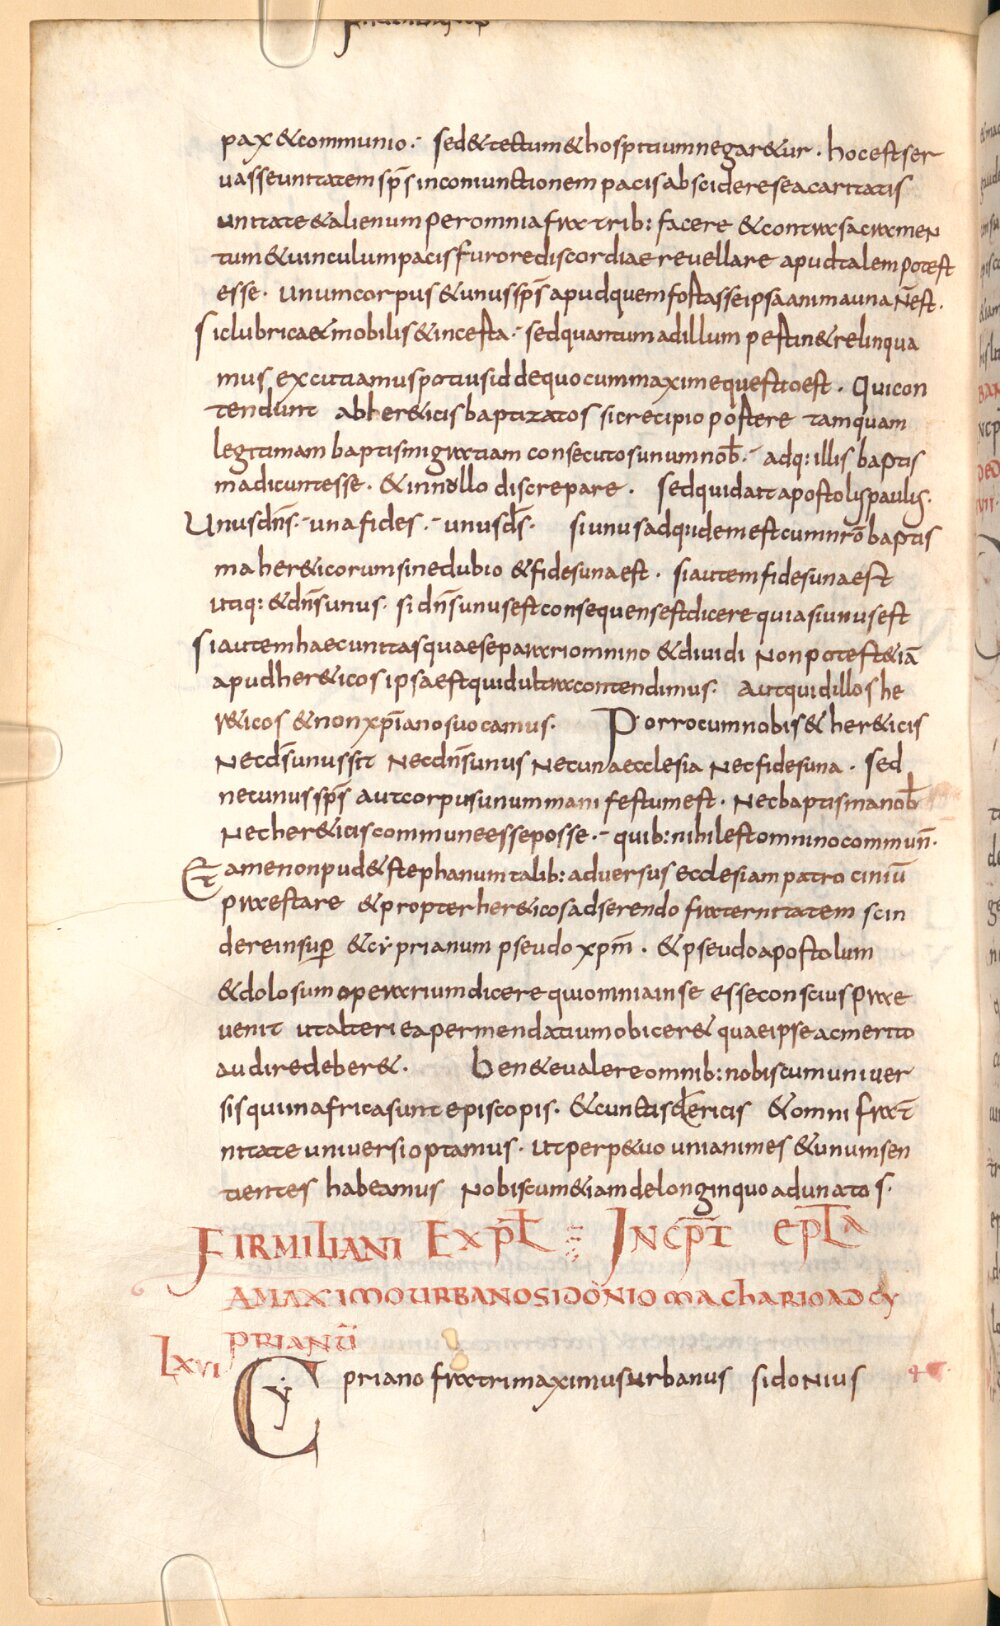 pax &communio. sed&tectum&hospitiumnegar&ur. hocestser
uasseunitatem sp̄s inconiunctionem pacis abscideresea caritatis
unitate&alienum per omnia fratrib: facere &contra sacramen
tum&uinculumpacisfurorediscordiae reuellare apudtalem potest
esse. unumcorpus&unussp̄s apudquem fostasseipsaanimauna n̄est.
Siclubrica&mobilis&incesta. sedquantumadillum pestin&relinqua
mus excutiamuspotiusid dequocummaximequestioest. Quicon
tendunt abher&icis baptizatos sicrecipiopostere tamquam
legitimam baptismigratiam consecutosunumnob̄. adq: illis baptis
madicuntesse. &innullo discrepare. sedquidaitapostolus paulus.
Unusdn̄s. una fides. unusd̄s. siunusadq:idemestcumnr̄o baptis
maher&icorumsinedubio &fidesunaest. siautemfidesunaest
utiq: &dn̄sunus. sidn̄sunusestconsequensestdicere quiasiunusest
siautemhaecunitasquaeseparariomnino &diuidi Nonpotest&iā
apudher&icos ipsaestquidultracontendimus. Autquidillos he
r&icos &nonxp̄ianosuocamus. Porrocumnobis&her&icis
Necd̄sunussit Necdn̄sunus Necunaecclesia Necfidesuna. Sed
necunussp̄s autcorpusunummanifestumest. Necbaptismanob̄
Necher&iciscommuneesseposse. quib:nihilestomninocommun̄.
Et amenonpud&stephanumtalib: aduersus ecclesiampatrociniū
praestare &propterher&icosadserendo fraternitatem scin
dereinsup̄ &cyprianum pseudo xp̄m. &pseudoapostolum
&dolosumoperariumdicere quiomniainse esseconscius prae
uenit utalterieapermendatiumobicer& quaeipseacmerito
audiredeber&. Ben&eualereomnib:nobiscumuniuer
sisquiinafricasuntepiscopis. &cunctisclericis &omni frat̄
nitate uniuersioptamus. utperp&uo unianimes &unumsen
tientes habeamus Nobiscum&iamdelonginquoadunatos.
FIRMILIANI EXPL̄T INCP̄T EPL̄A
AMAXIMOURBANOSIDONIOMACHARIOADCY
PRIANŪ
LXVI
Cypriano fratrimaximusurbanus sidoNius